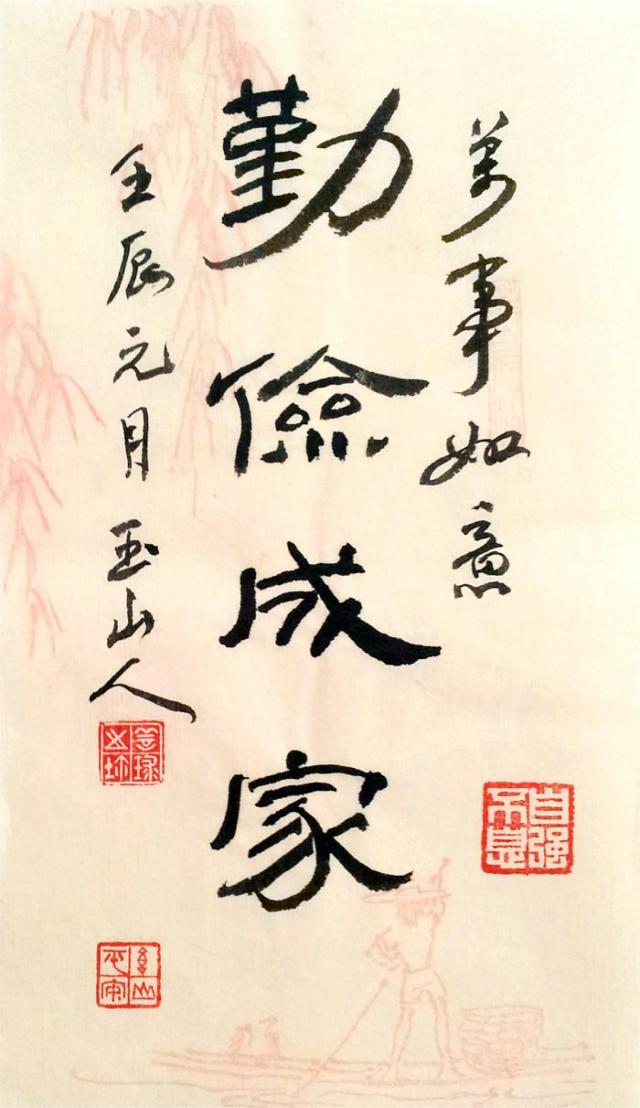 萬事如意
勤儉成家
壬辰元月玉山人
自强不息